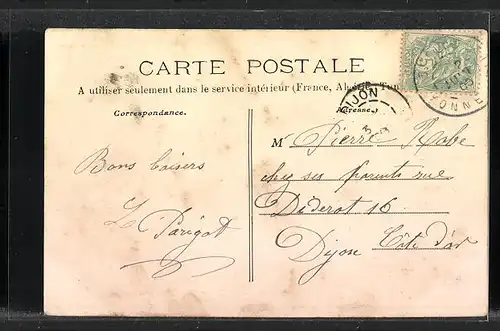 CARTE POSTALE
A utiliser seulement dans le service intérieur (France, Algérie, Tun
Correspondance.
Adresse
DIJON
YONNE
Bons baisers
Le Parigot
Mr Pierre Robe
chez ses parents rue
Diderot 16
Dijon Côte d'or